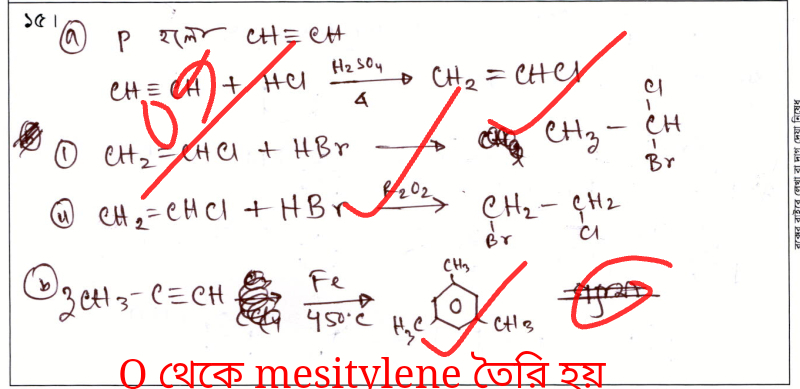 ১৫।
ⓐ P হলো CH≡CH
CH≡CH + HCl H₂SO₄ Δ → CH₂=CHCl
09
ⓘ CH₂=CHCl + HBr → CH₃–CH Cl Br
ⓘⓘ CH₂=CHCl + HBr R₂O₂ → CH₂–CH₂ Br Cl
ⓑ 3CH₃–C≡CH Fe 450°C → CH₃ H₃C CH₃
O থেকে mesitylene তৈরি হয়
বক্সের বাইরে লেখা বা দাগ দেয়া নিষেধ